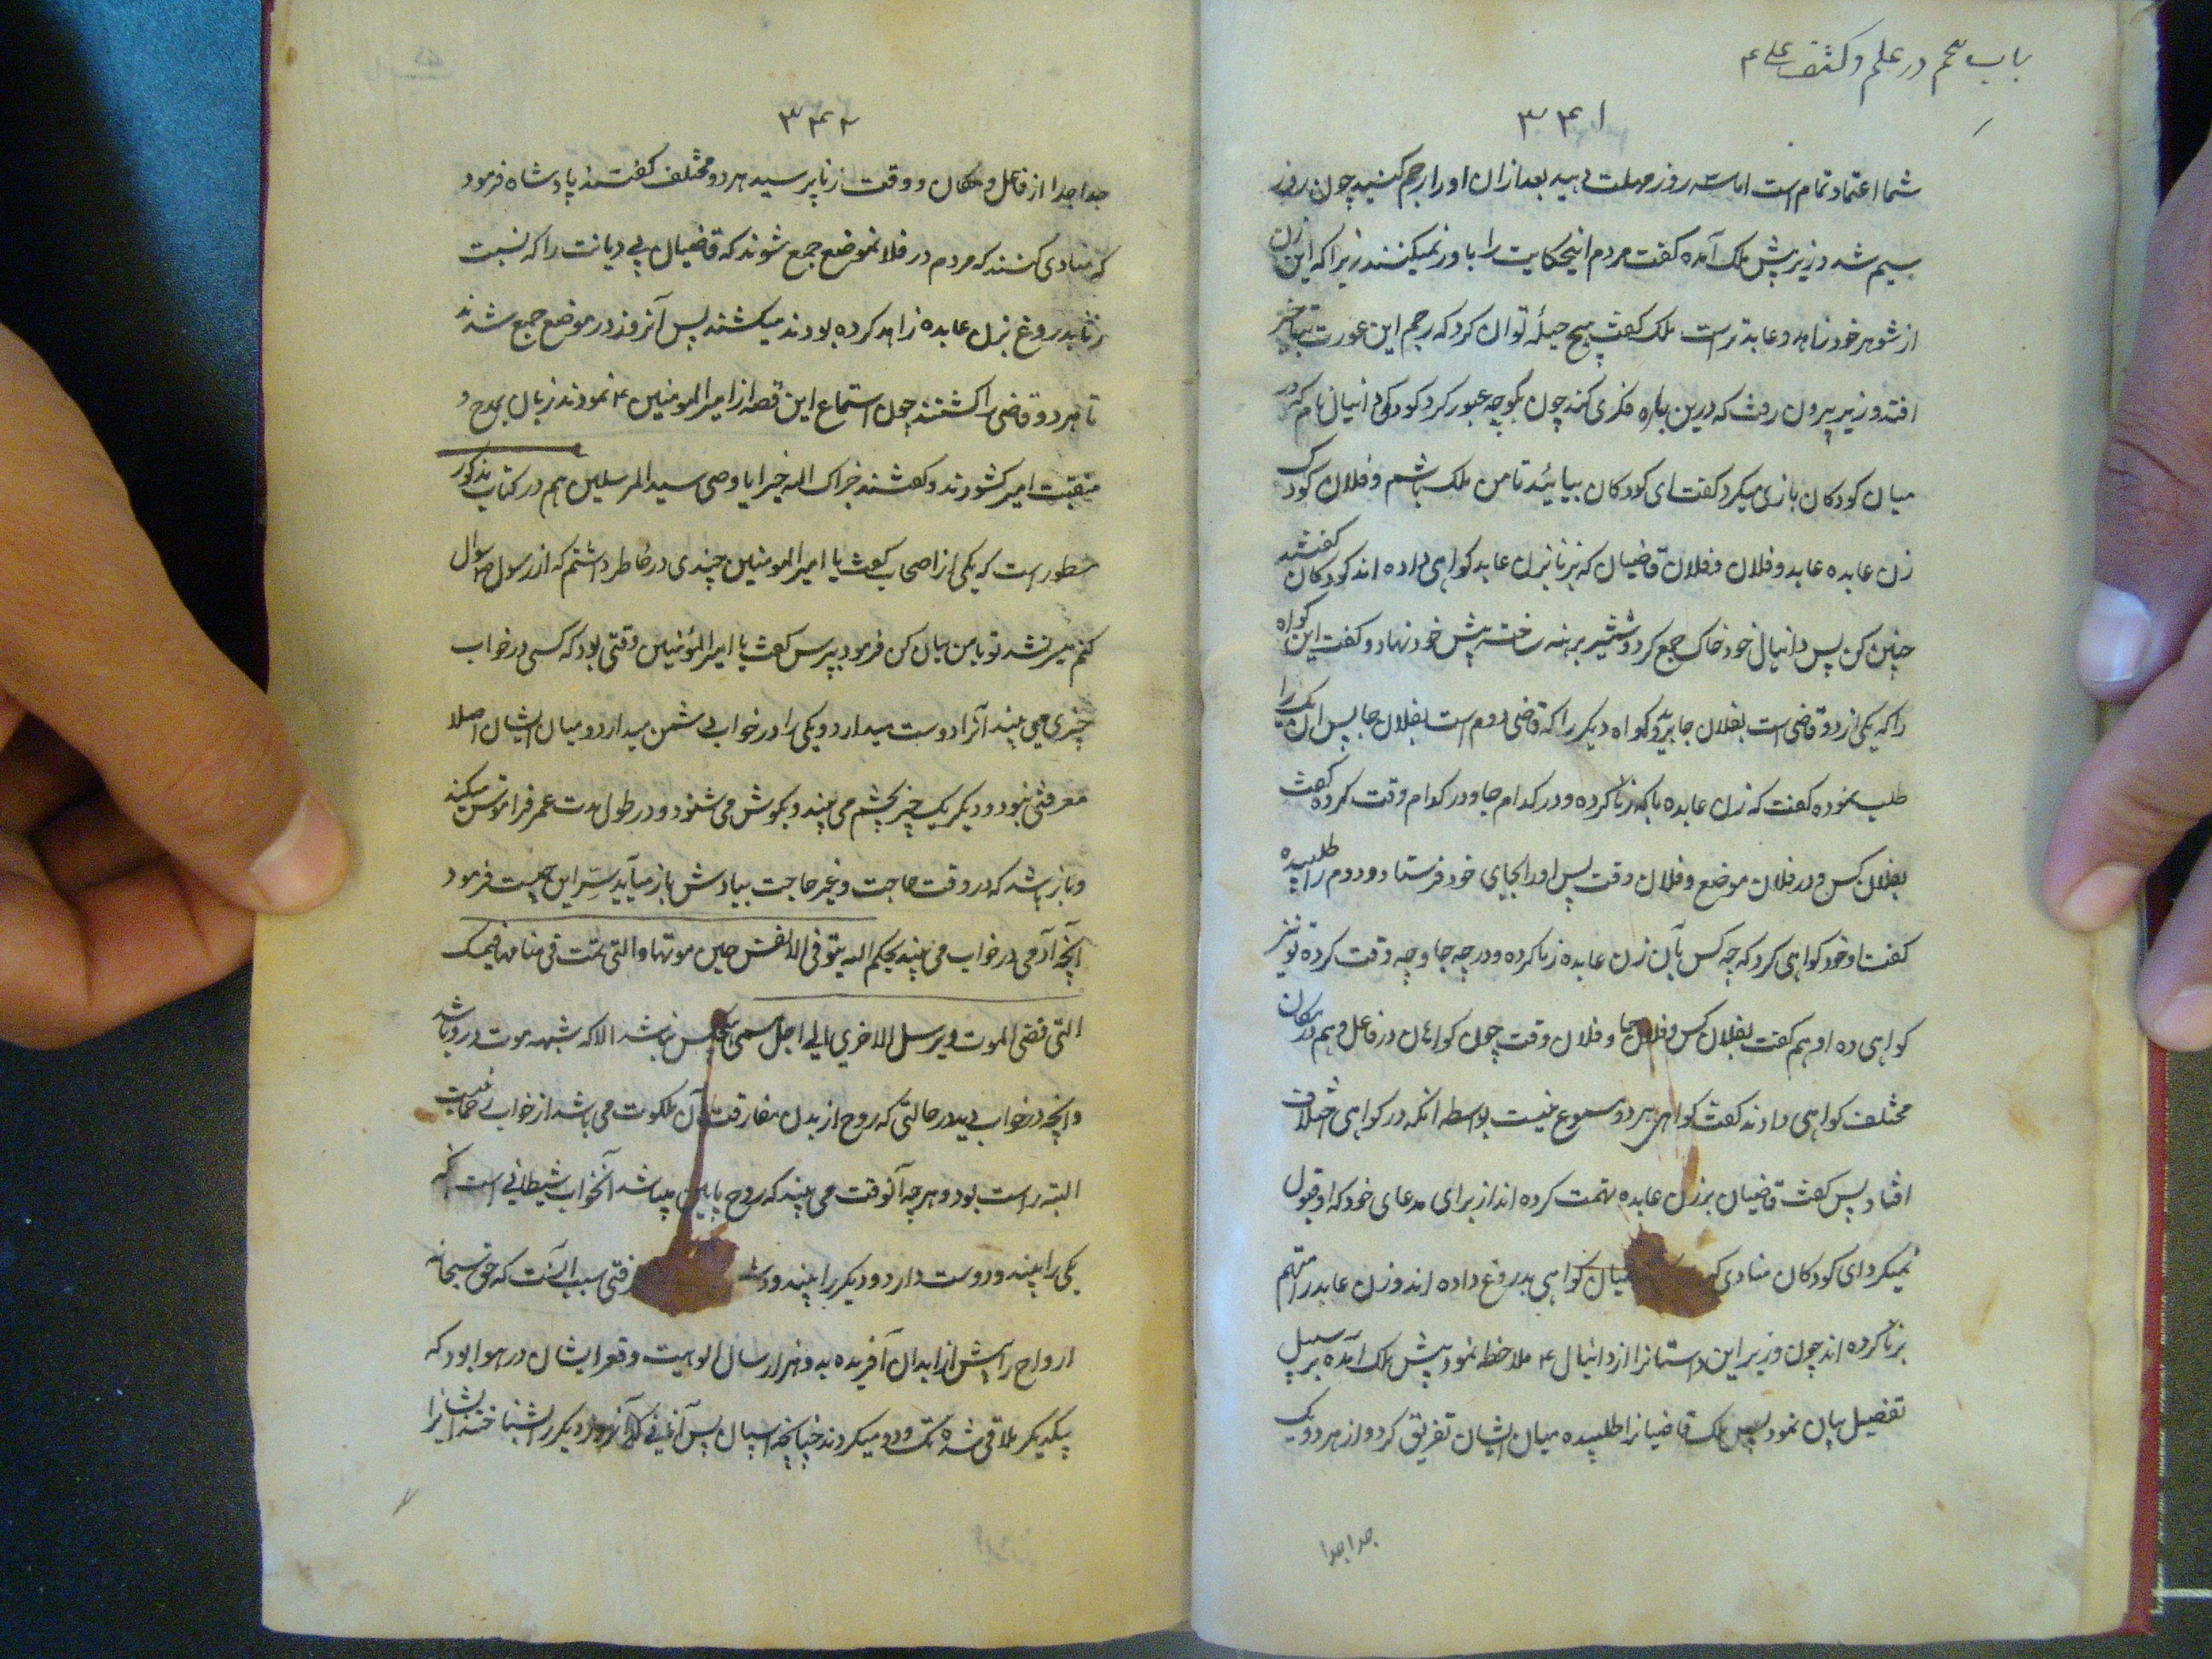 باب در علم و کشف علی ع
۳۴۱
شما اعتماد تمام است اما سه روز مهلت دهید بعد ازان اورا رجم کنید چون روز
سیم شد وزیر پیش ملک آمده کفت مردم اینحکایت را باور نمیکنند زیرا که این زن
از شوهر خود زاهد و عابدتر است ملک کفت هیچ حیلهٔ توان کرد که رجم این عورت بتاخیر
افتد وزیر بیرون رفت که درین باره فکری کند چون بکوچه عبور کرد کودکی دانیال نام که در
میان کودکان بازی میکرد کفت ای کودکان بیائید تا من ملک باشم و فلان کودک
زن عابده عابد و فلان و فلان قاضیان که بزنا بزن عابد کواهی داده اند کودکان کفتند
چنین کن پس دانیال خود خاک جمع کرد و شمشیر برهنه ساخته پیش خود نهاد و کفت این کواه
را که یکی از دو قاضی است بفلان جا برید و کواه دیکر را که قاضی دوم است بفلان جا پس ان یک را
طلب نموده کفت که زن عابده با که زنا کرده و در کدام جا و در کدام وقت کرده کفت
بفلان کس و در فلان موضع و فلان وقت پس اورا بجای خود فرستاد و دوم را طلبیده
کفت او خود کواهی کرد که چه کس بآن زن عابده زنا کرده و در چه جا و چه وقت کرده تو نیز
کواهی ده او هم کفت بفلان کس و فلان جا و فلان وقت چون کواهان در فاعل و هم در مکان
مختلف کواهی دادند کفت کواهی هر دو مسموع نیست بواسطه انکه در کواهی اختلاف
افتاد پس کفت قاضیان بر زن عابده تهمت کرده اند از برای مدعای خود که او قبول
نمیکرد ای کودکان منادی کواهی بدروغ داده اند و زن عابد را متهم
بزنا کرده اند چون وزیر این داستانرا از دانیال ع ملاحظه نمود پیش ملک آمده بر سبیل
تفصیل بیان نمود پس ملک قاضیانرا طلبیده میان ایشان تفریق کرد و از هر دو یک
جدا جدا
۳۴۲
جدا جدا از فاعل و مکان و وقت زنا پرسید هر دو مختلف کفتند پادشاه فرمود
که منادی کنند که مردم در فلانموضع جمع شوند که قاضیان بی دیانت را که نسبت
زنا بدروغ بزن عابده زاهد کرده بودند میکشند پس آنروز در موضع جمع شدند
تا هر دو قاضی را کشتند چون استماع این قصه از امیر المومنین ع نمودند زبان بمدح و
منقبت امیر کشودند و کفتند جزاک الله خیرا یا وصی سید المرسلین هم در کتاب مذکور
مسطور است که یکی از اصحاب کفت یا امیر المومنین چندی در خاطر داشتم که از رسول ص سوال
کنم میسر نشد تو با من بیان کن فرمود بپرس کفت یا امیر المؤمنین وقتی بود که کسی در خواب
چیزی می بیند آنرا دوست میدارد و یکی را در خواب دشمن میدارد و میان ایشان اصلا
معرفتی نبود و دیکر یک چیز بچشم می بیند و بکوش می شنود و در طول مدت عمر فراموش میکند
و باز باشد که در وقت حاجت و غیر حاجت بیادش باز میآید سر این چیست فرمود
آنچه آدمی در خواب می بیند بحکم الله یتوفی الانفس حین موتها والتی لم تمت فی منامها فیمسک
التی قضی الموت و یرسل الاخری الی اجل مسمی هیچکس نباشد الا که شبهه موت درو باشد
و آنچه در خواب بیند در حالتی که روح از بدن مفارقت آن ملکوت می باشد از خواب
البته راست بود و هر چه آنوقت می بیند که روح پایین میباشد آنخواب شیطانی است آنکه
یکی را بیند و دوست دارد و دیکر را بیند و سبب آنست که حق سبحانه
ارواح را پیش از ابدان آفریده بدو هزار سال الوهیت و قعر ایشان در هوا بود که
بیکدیکر ملاقی شده تک و دو میکردند چنانچه اسپان پس آنانی که آنروز دیکر را شناختند ایشانرا